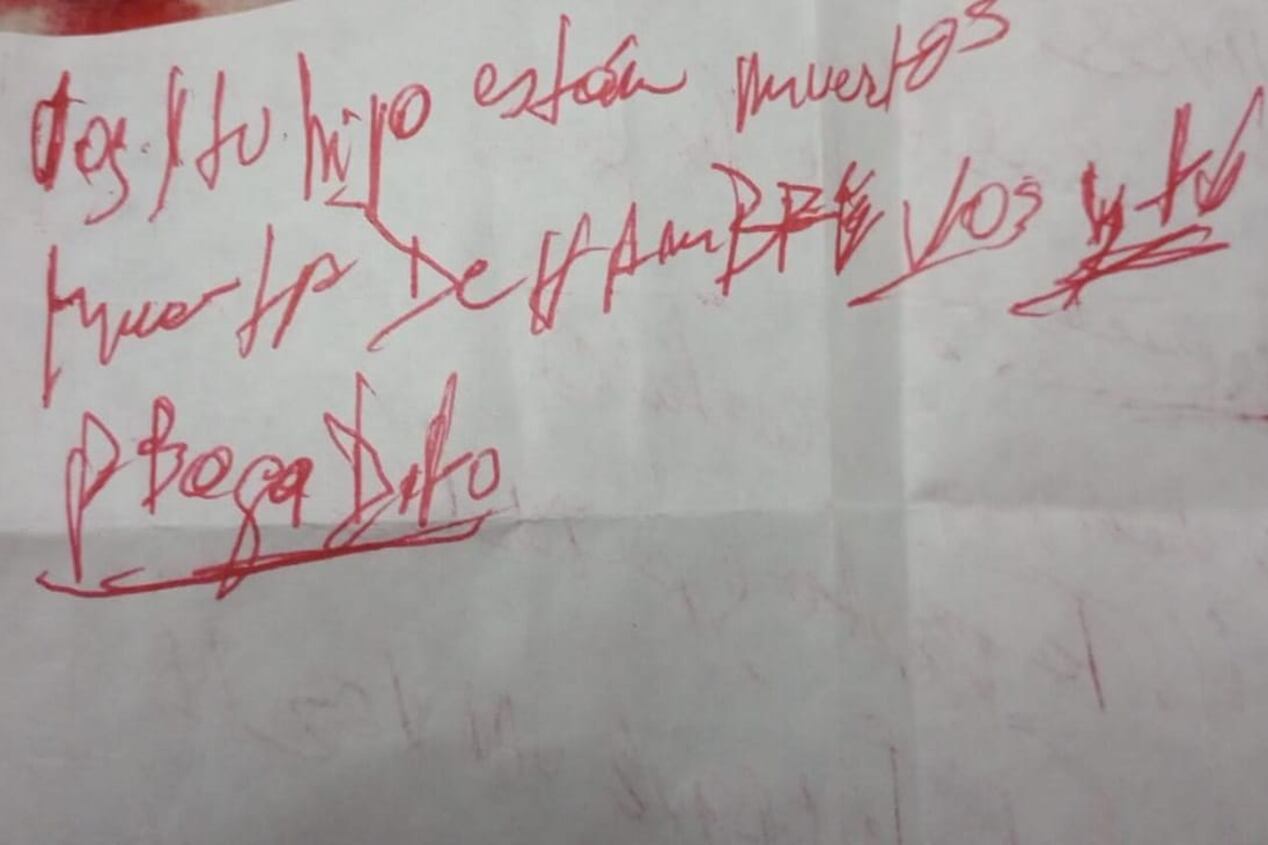 Vos. y tu. hijo están muertos
muerta De HAmBRE Vos y tu
ABogaDito